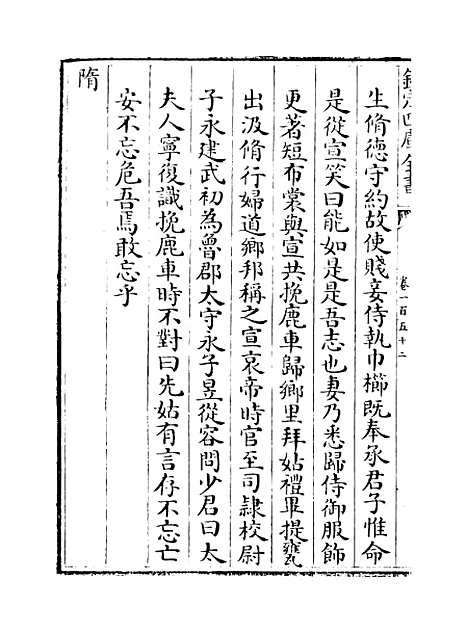 欽定四庫全書
卷一百五十二
生脩德守約故使賤妾侍執巾櫛既奉承君子惟命
是從宣笑曰能如是是吾志也妻乃悉歸侍御服飾
更著短布裳與宣共挽鹿車歸鄉里拜姑禮畢提甕
出汲脩行婦道鄉邦稱之宣哀帝時官至司隸校尉
子永建武初為魯郡太守永子昱從容問少君曰太
夫人寧復識挽鹿車時不對曰先姑有言存不忘亡
安不忘危吾焉敢忘乎
隋